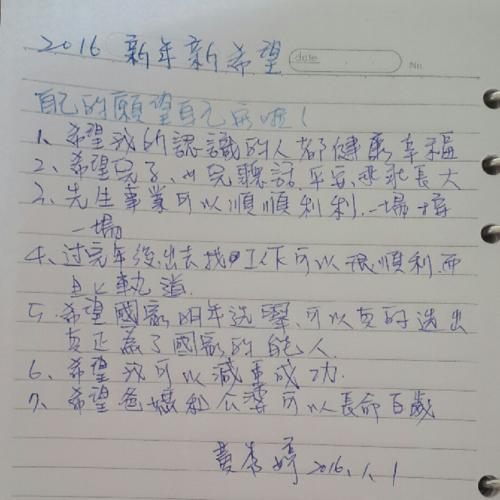 2016 新年新希望
date
No.
自己的願望自己寫啦!
1、希望我所認識的人都健康幸福
2、希望完子、小完聽話,平安,乖乖長大
3、先生事業可以順順利利,一場接
一場
4、过完年後,出去找工作可以很順利,而
且上軌道.
5、希望國家明年选舉,可以真的选出
真正為了國家的能人.
6、希望我可以減重成功.
7、希望爸媽和公婆可以長命百歲
黃 2016.1.1